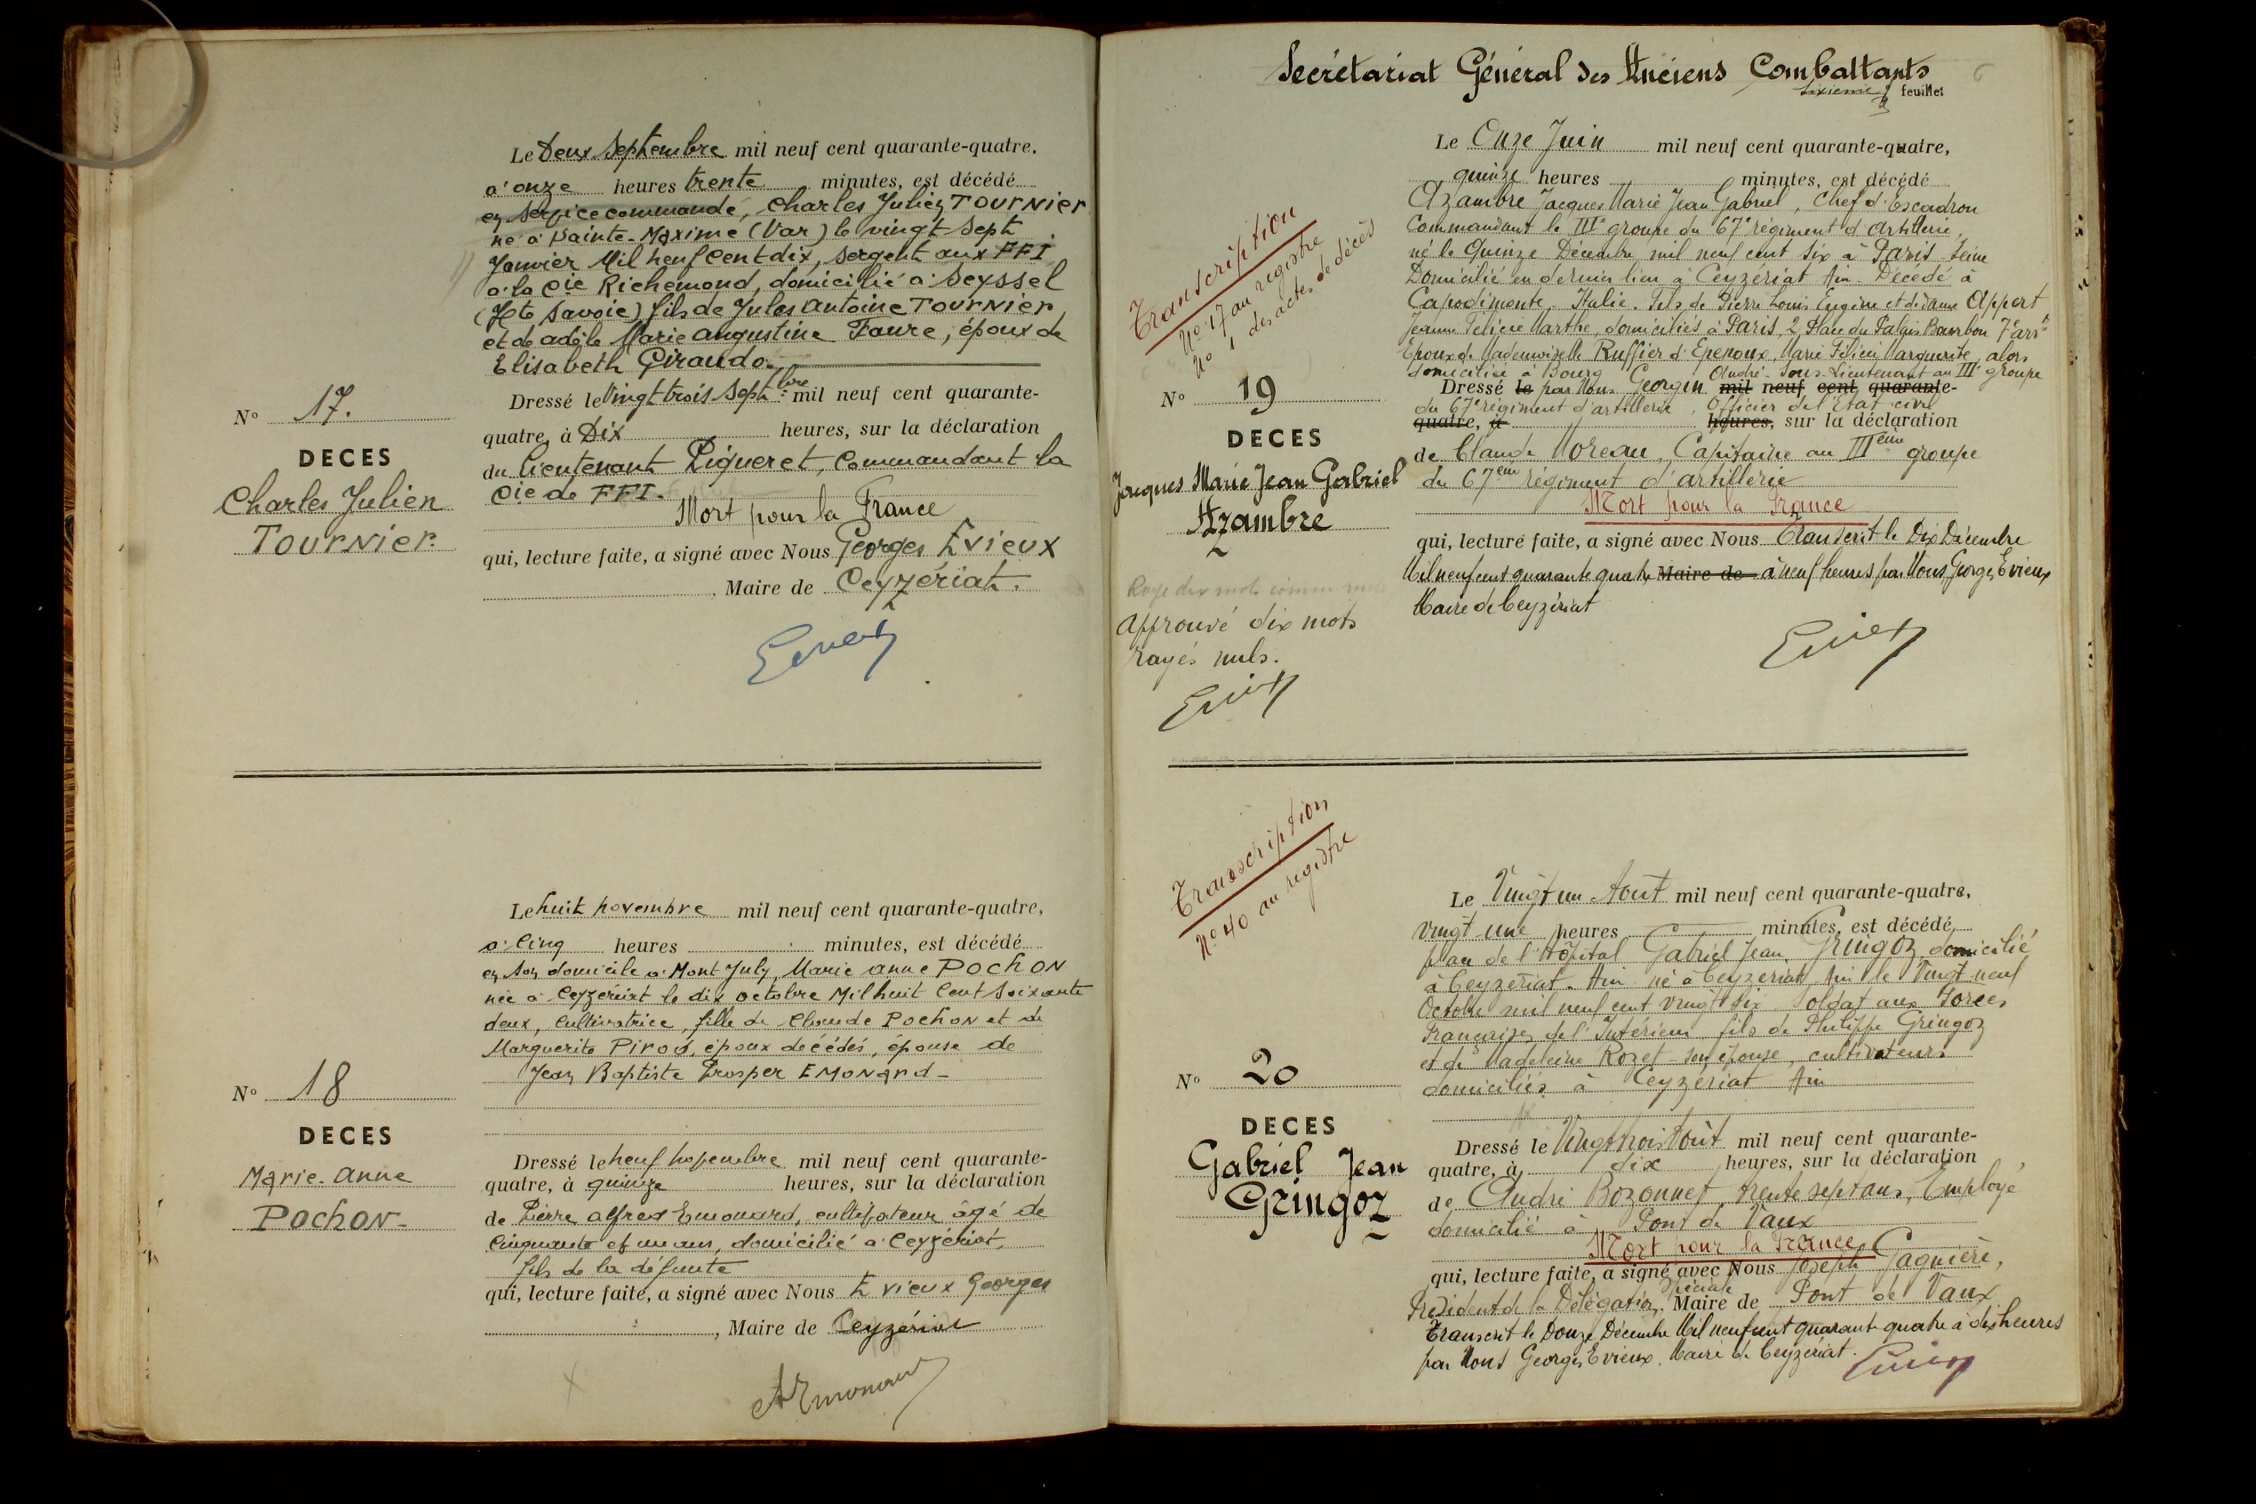 Le Deux Septembre mil neuf cent quarante-quatre.
à onze heures trente minutes, est décédé
en service commandé, Charles Julien TOURNIER
né à Sainte-Maxime (Var) le vingt Sept
Janvier Mil neuf cent dix, Sergent aux FFI
à la Cie Richemond, domicilié à Seyssel
(Hte Savoie) fils de Jules Antoine TOURNIER
et de adèle Marie augustine Faure, époux de
Elisabeth Giraudo.
N° 17.
DECES
Charles Julien
TOURNIER
Dressé le Vingt trois Septbre mil neuf cent quarante-
quatre, à Dix heures, sur la déclaration
du lieutenant Piqueret, Commandant la
Cie de FFI.
Mort pour la France
qui, lecture faite, a signé avec Nous Georges Evieux
, Maire de Ceyzériat.
Le huit novembre mil neuf cent quarante-quatre,
à Cinq heures minutes, est décédé
en son domicile à Mont July, Marie anne POCHON
née à Ceyzériat le dix octobre Mil huit Cent Soixante
deux, Cultivatrice, fille de Claude POCHON et de
Marguerite Piroù, époux décédés, épouse de
Jean Baptiste Prosper EMONARD -
N° 18
DECES
Marie-anne
POCHON-
Dressé le neuf novembre mil neuf cent quarante-
quatre, à quinze heures, sur la déclaration
de Pierre alfred Emonard, cultivateur âgé de
Cinquante et un ans, domicilié à Ceyzériat,
fils de la défunte
qui, lecture faite, a signé avec Nous Evieux Georges
, Maire de Ceyzériat
AEmonard
Secrétariat Général des Anciens Combattants
sixième feuillet
6
Transcription
N° 17 au registre
N° 1 des actes de décès
Le Onze Juin mil neuf cent quarante-quatre,
quinze heures minutes, est décédé
Azambre Jacques Marie Jean Gabriel, Chef d'Escadron
Commandant le IIIe groupe du 67e régiment d'Artillerie,
né le Quinze Décembre mil neuf cent six à Paris Seine
Domicilié en dernier lieu à Ceyzériat Ain. Décédé à
Capodimonte. Italie. Fils de Pierre Louis Eugène et de dame Appert
Jeanne Félicie Marthe, domiciliés à Paris, 2, Place du Palais Bourbon 7e arrt
Epoux de Mademoiselle Ruffier d'Epenoux, Marie Félicie Marguerite, alors
domiciliée à Bourg
Dressé le par Nous Georgin André Sous-Lieutenant au IIIe groupe mil neuf cent quarante-
du 67e régiment d'artillerie, Officier de l'Etat civil
quatre, à heures, sur la déclaration
de Claude Moreau, Capitaine au IIIème groupe
du 67ème régiment d'artillerie
Mort pour la France
qui, lecture faite, a signé avec Nous Transcrit le Dix Décembre
Mil neuf cent quarante quatre Maire de à neuf heures par Nous, Georges Evieux
Maire de Ceyzériat
N° 19
DECES
Jacques Marie Jean Gabriel
Azambre
Rayé dix mots comme nuls
Approuvé dix mots
rayés nuls.
Transcription
N° 40 au registre
Le Vingt un Août mil neuf cent quarante-quatre,
vingt une heures minutes, est décédé
place de l'Hôpital Gabriel Jean Gringoz domicilié
à Ceyzériat. Ain né à Ceyzériat, Ain le Vingt neuf
Octobre mil neuf cent vingt six Soldat aux Forces
Françaises de l'Intérieur fils de Philippe Gringoz
et de Madeleine Rozet son épouse, cultivateurs
domiciliés à Ceyzériat Ain
N° 20
DECES
Gabriel Jean
Gringoz
Dressé le Vingt trois Août mil neuf cent quarante-
quatre, à dix heures, sur la déclaration
de André Bozonnet, trente sept ans, Employé
domicilié à Pont de Vaux
Mort pour la France
qui, lecture faite, a signé avec Nous Joseph Gagnière,
Président de la Délégation Spéciale Maire de Pont de Vaux
Transcrit le Douze Décembre Mil neuf cent quarante quatre à dix heures
par Nous Georges Evieux, Maire de Ceyzériat.